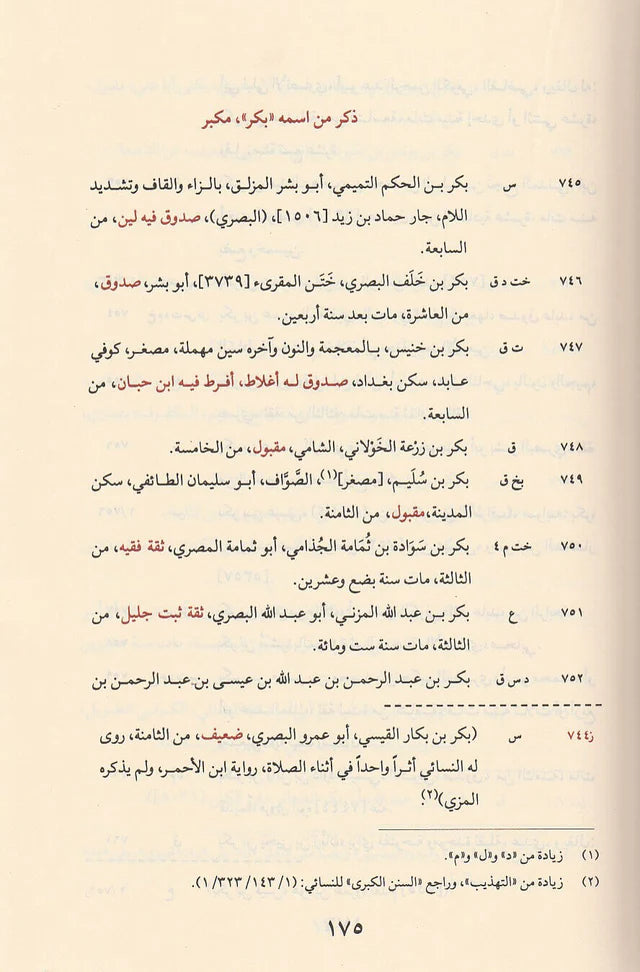 ذكر من اسمه «بكر»، مكبر
٧٤٥ س بكر بن الحكم التميمي، أبو بشر المزلق، بالزاء والقاف وتشديد
اللام، جار حماد بن زيد [١٥٠٦]، (البصري)، صدوق فيه لين، من
السابعة.
٧٤٦ خت د ق بكر بن خَلَف البصري، خَتَن المقرىء [٣٧٣٩]، أبو بشر، صدوق،
من العاشرة، مات بعد سنة أربعين.
٧٤٧ ت ق بكر بن خنيس، بالمعجمة والنون وآخره سين مهملة، مصغر، كوفي
عابد، سكن بغداد، صدوق له أغلاط، أفرط فيه ابن حبان، من
السابعة.
٧٤٨ ق بكر بن زرْعة الخَوْلاني، الشامي، مقبول، من الخامسة.
٧٤٩ بخ ق بكر بن سُلَيم، [مصغر](١)، الصَّوَّاف، أبو سليمان الطائفي، سكن
المدينة، مقبول، من الثامنة.
٧٥٠ خت م ٤ بكر بن سَوَادة بن ثُمَامة الجُذامي، أبو ثمامة المصري، ثقة فقيه، من
الثالثة، مات سنة بضع وعشرين.
٧٥١ ع بكر بن عبد الله المزني، أبو عبد الله البصري، ثقة ثبت جليل، من
الثالثة، مات سنة ست ومائة.
٧٥٢ د س ق بكر بن عبد الرحمن بن عبد الله بن عيسى بن عبد الرحمن بن
ز٧٤٤ س (بكر بن بكار القيسي، أبو عمرو البصري، ضعيف، من الثامنة، روى
له النسائي أثراً واحداً في أثناء الصلاة، رواية ابن الأحمر، ولم يذكره
المزي)(٢).
(١) زيادة من «د» و«ل» و«م».
(٢) زيادة من «التهذيب»، وراجع «السنن الكبرى» للنسائي: (١/ ١٤٣/ ٣٢٣/ ١).
١٧٥